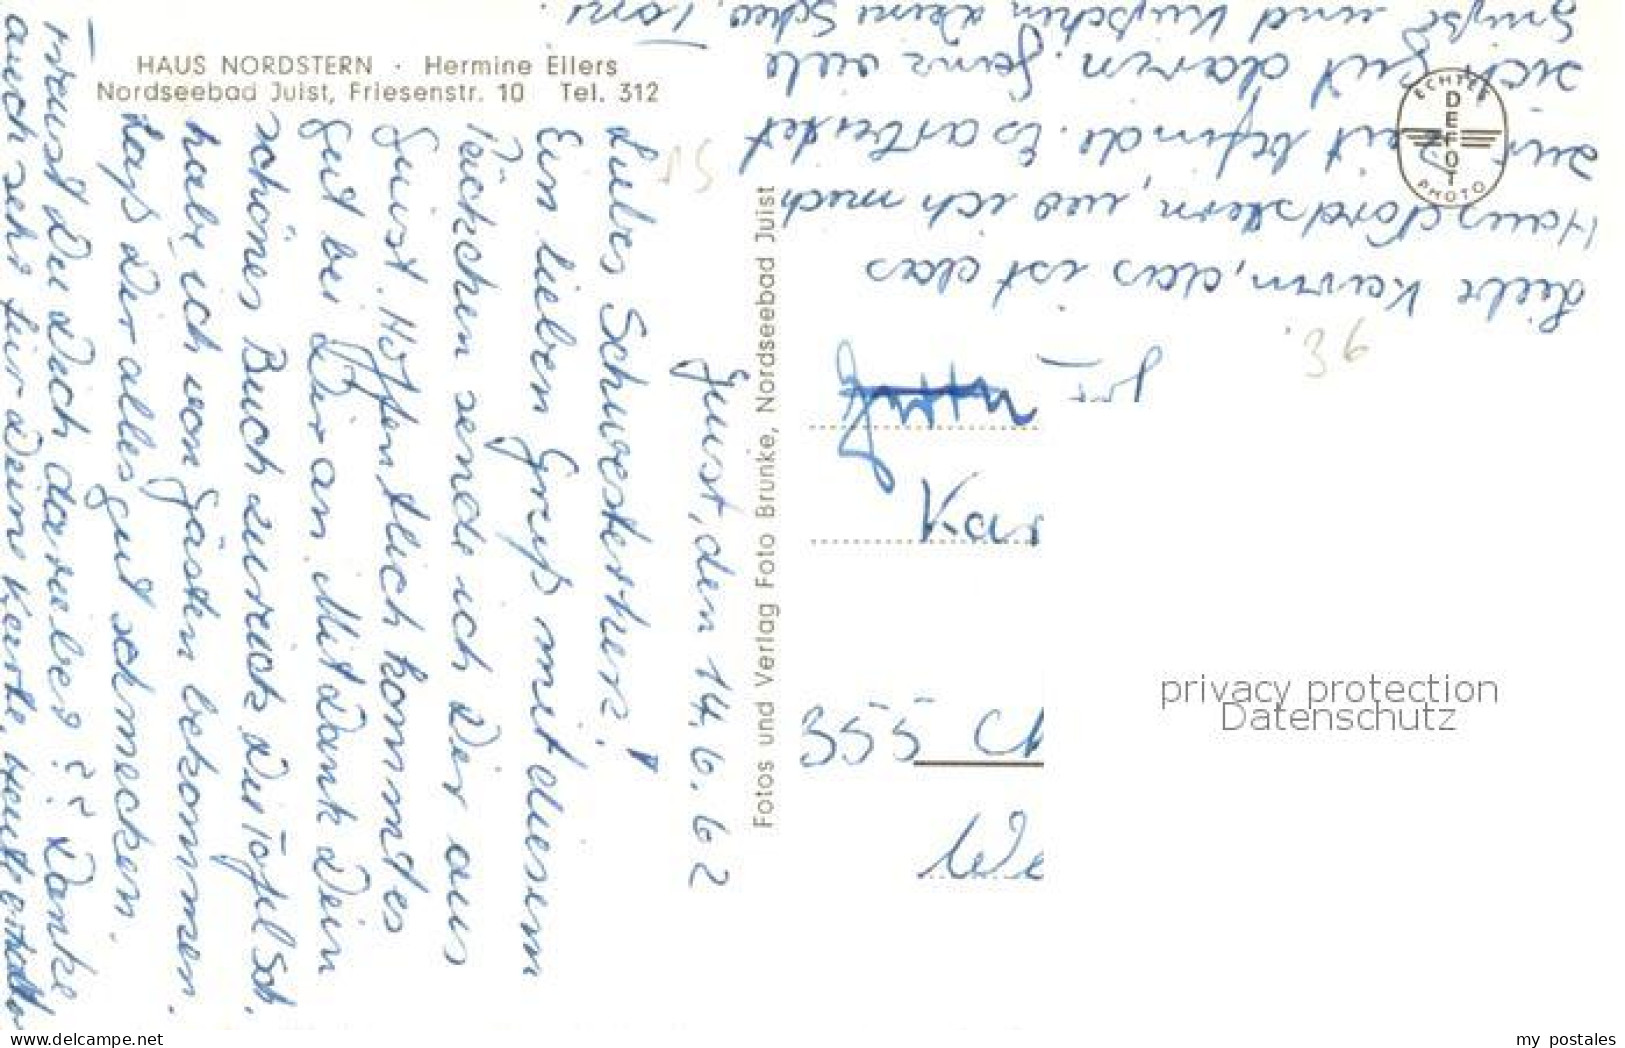 HAUS NORDSTERN · Hermine Eilers
Nordseebad Juist, Friesenstr. 10 Tel. 312
Juist, den 14. 6. 62
Liebes Schwesterherz!
Ein lieben Gruß mit diesem
Kärtchen sende ich Dir aus
Juist. Hoffentlich kommt es
gut bei Dir an. Mit Dank Dein
schönes Buch zurück. Die Tafel Sch.
habe ich von Gästen bekommen.
Laß Dir alles gut schmecken.
Freust Du Dich darüber?? Danke
auch sehr für Deine Karte, heute erhalten
Liebe Karin, das ist das
Haus Nordstern, wo ich mich
zur Zeit befinde. Es arbeitet
sich gut darin. Ganz viele
Grüße und Küßchen Deine Schw. Toni.
Fotos und Verlag Foto Brunke, Nordseebad Juist
ECHTES
DEFOT
PHOTO
36
355
privacy protection
Datenschutz
delcampe.net
my_postales